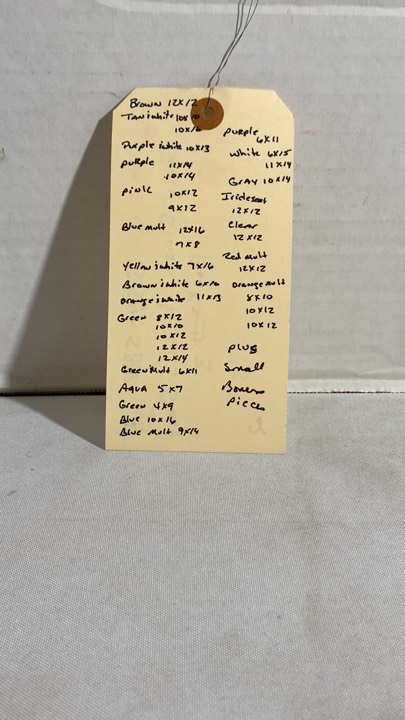 Brown 12x12
Tan white 10x10
10x16
Purple white 10x13
Purple 11x14
10x14
Pink 10x12
9x12
Blue Mult 12x16
7x8
Yellow white 7x16
Brown white 6x10
Orange white 11x13
Green 8x12
10x10
10x12
12x12
12x14
Green Mult 6x11
Aqua 5x7
Green 4x9
Blue 10x16
Blue Mult 9x14
Purple
6x11
White 6x15
11x14
Gray 10x14
Iridescent
12x12
Clear
12x12
Red Mult
12x12
Orange Mult
8x10
10x12
10x12
Plus
Small
Pieces